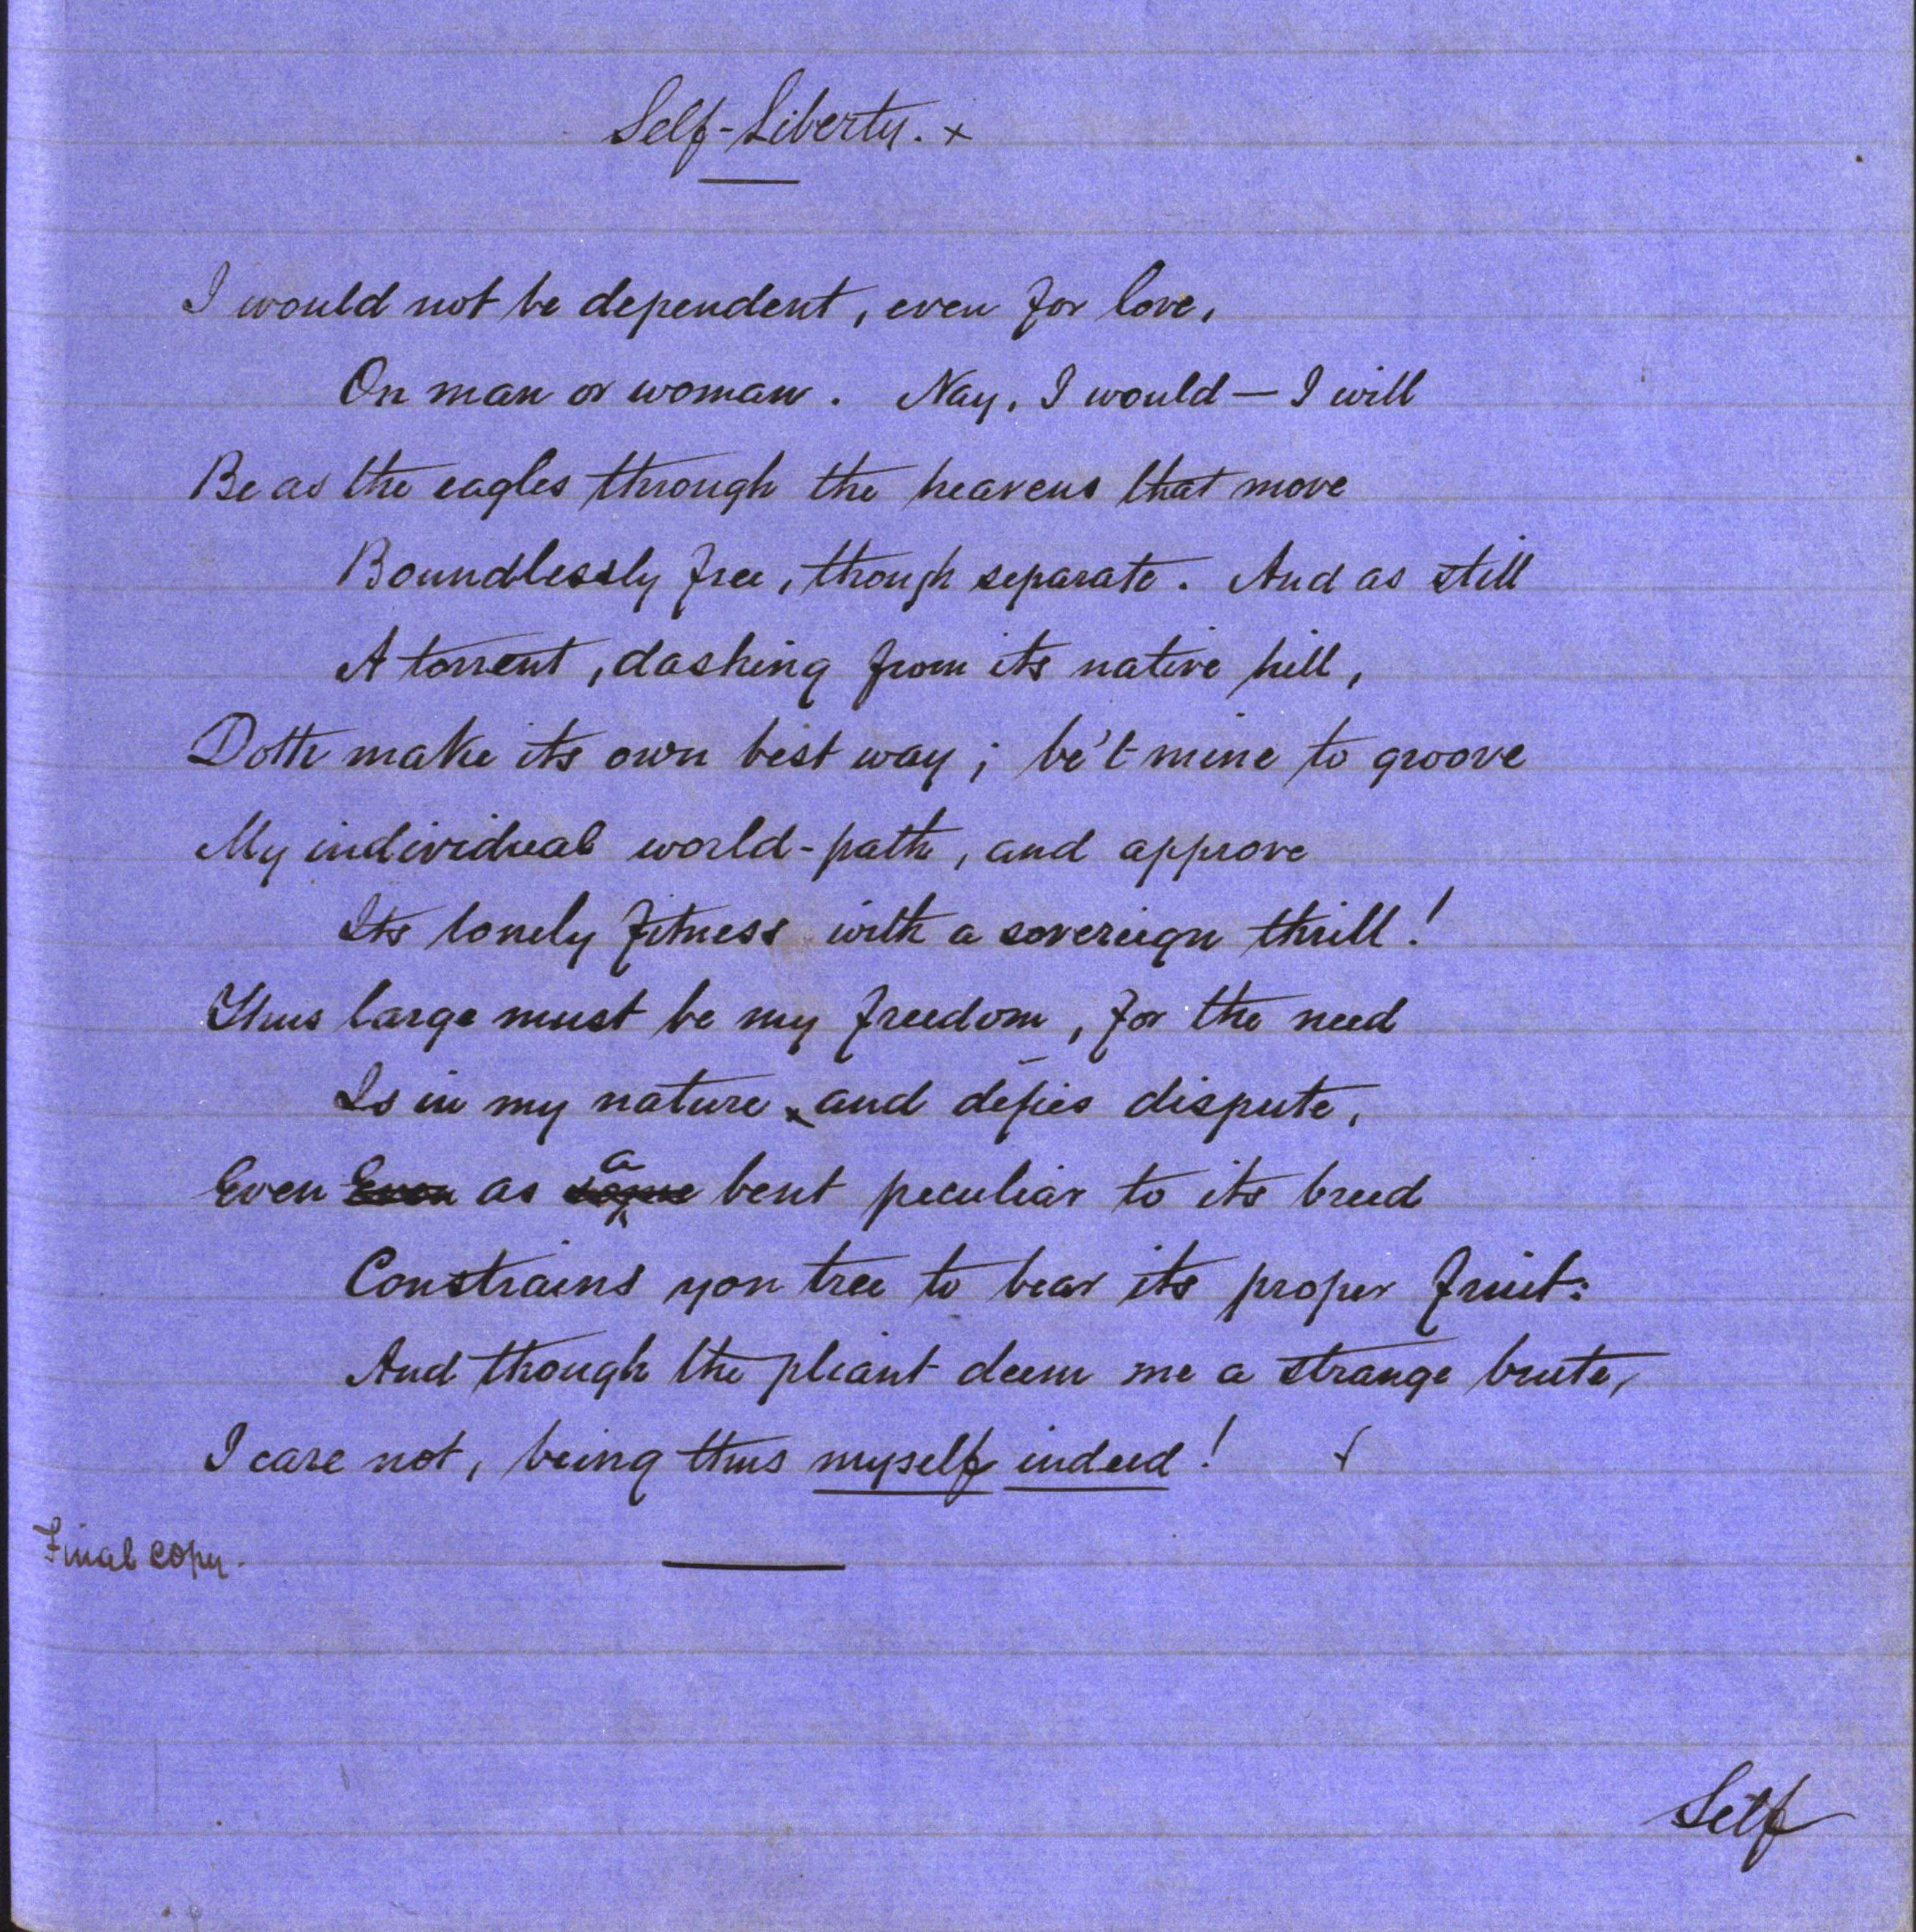 Self-Liberty. x
I would not be dependent, even for love,
On man or woman. Nay, I would — I will
Be as the eagles through the heavens that move
Boundlessly free, though separate. And as still
A torrent, dashing from its native hill,
Doth make its own best way; be't mine to groove
My individual world-path, and approve
Its lonely fitness with a sovereign thrill!
Thus large must be my freedom, for the need
Is in my nature, and defies dispute,
Even Even as some a bent peculiar to its breed
Constrains yon tree to bear its proper fruit:
And though the pliant deem me a strange brute,
I care not, being thus myself indeed!
Final copy.
Self